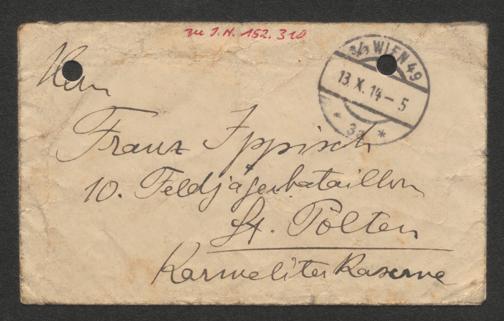 zu I.N. 152.310
3/1 WIEN 49
13.X.14-5
* 3a *
Herrn
Franz Ippisch
10. Feldjägerbataillon
St. Pölten
Karmeliter Kaserne